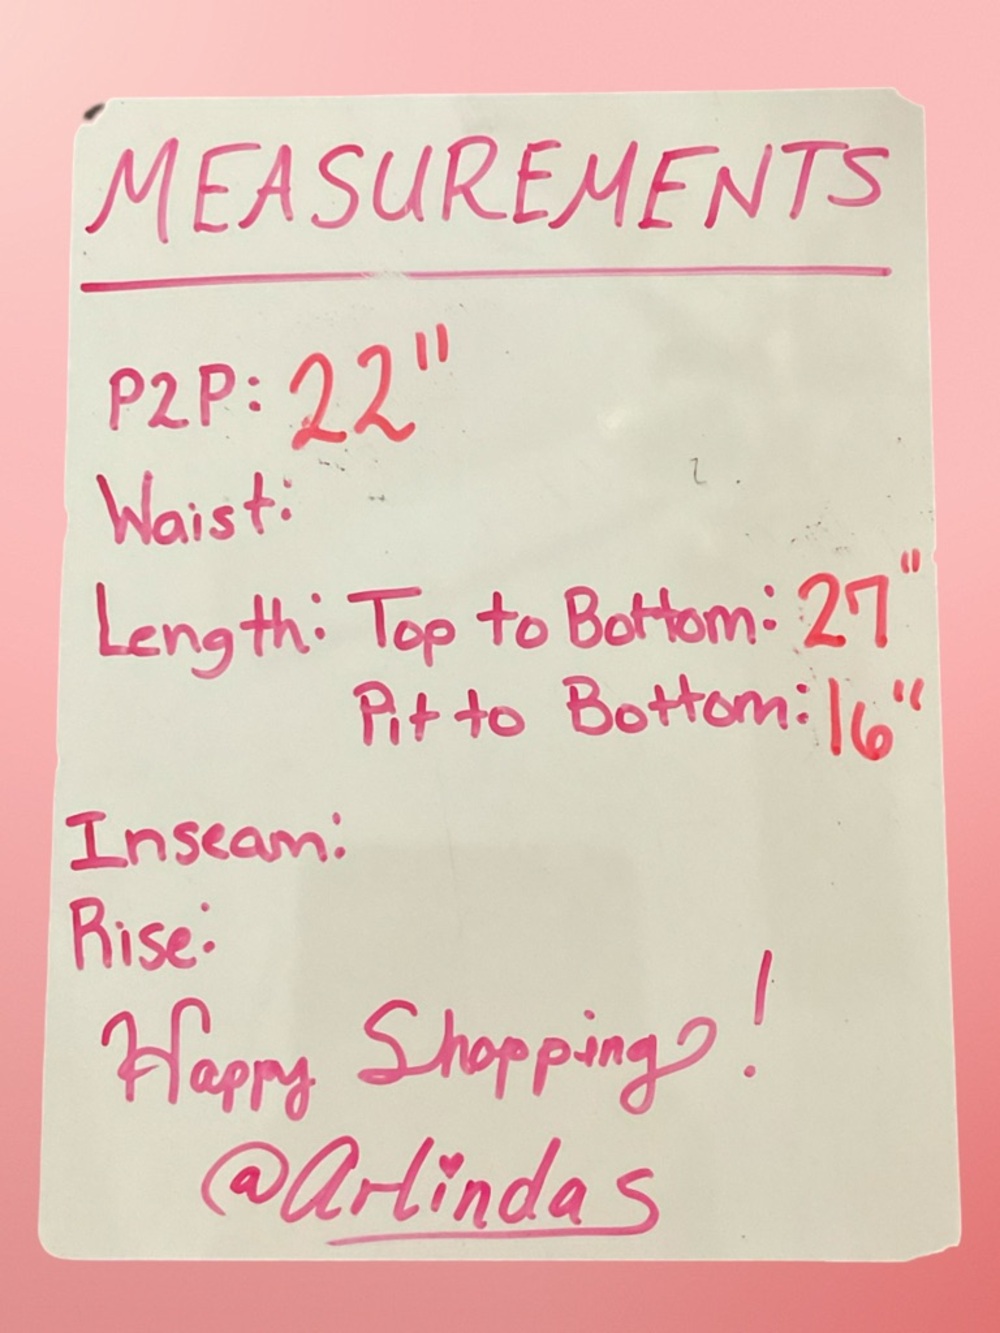 MEASUREMENTS
P2P: 22"
Waist:
Length: Top to Bottom: 27"
Pit to Bottom: 16"
Inseam:
Rise:
Happy Shopping!
@Arlindas